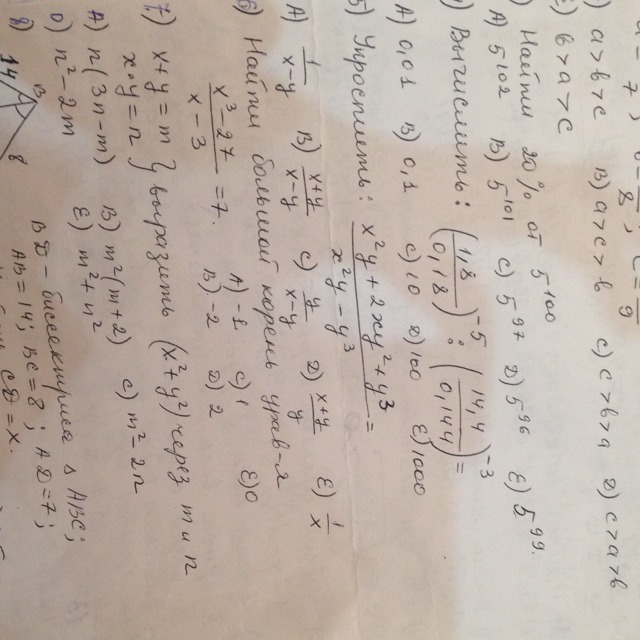 A) a > b > c B) a > c > b C) c > b > a D) c > a > b
E) b > a > c
Найти 20% от 5^100
A) 5^102 B) 5^101 C) 5^97 D) 5^96 E) 5^99.
Вычислить: (1,8/0,18)^-5 : (14,4/0,144)^-3 =
A) 0,01 B) 0,1 C) 10 D) 100 E) 1000
5) Упростить: (x²y + 2xy² + y³)/(x²y - y³) =
A) 1/(x-y) B) (x+y)/(x-y) C) y/(x-y) D) (x+y)/y E) 1/x
6) Найти больший корень урав-я
(x³ - 27)/(x - 3) = 7. A) -1 C) 1 E) 0
B) -2 D) 2
7) x + y = m
x · y = n } выразить (x² + y²) через m и n
A) n(3n - m) B) m²(m + 2) C) m² - 2n
D) n² - 2m E) m² + n²
8) BD - биссектриса Δ ABC;
AB = 14; BC = 8; AD = 7;
CD = x.
14 B 8